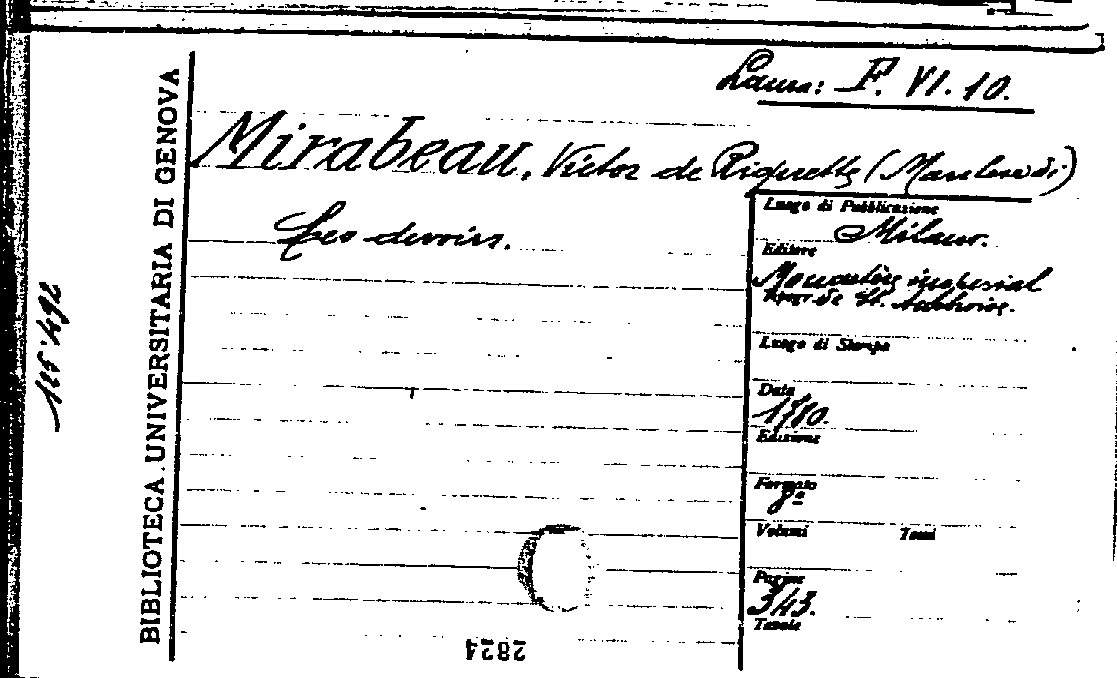 Laura: F. VI. 10.
Mirabeau, Victor de Riquetti (Marchese di)
Les devoirs.
Luogo di Pubblicazione
Milano.
Editore
Monastère impérial
Tipogr. de St. Ambroise.
Luogo di Stampa
Data
1780.
Edizione
Formato
8º
Volumi Tomi
Pagine
343.
Tavole
BIBLIOTECA UNIVERSITARIA DI GENOVA
2824